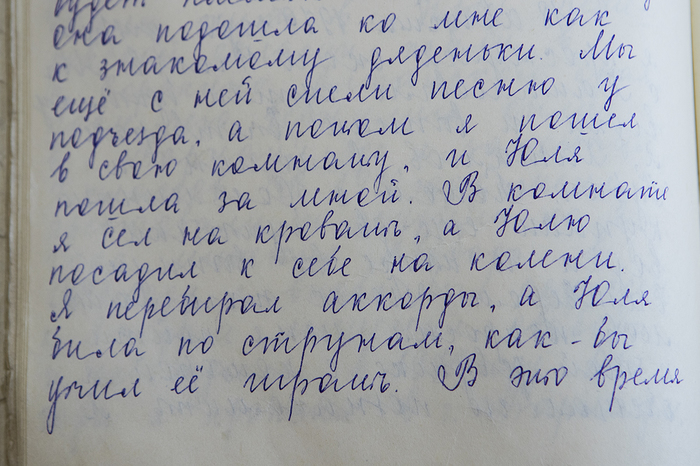 она подошла ко мне как
к знакомому дяденьки. Мы
ещё с ней спели песню у
подъезда, а потом я пошел
в свою комнату, и Юля
пошла за мной. В комнате
я сел на кровать, а Юлю
посадил к себе на колени.
Я перебирал аккорды, а Юля
била по струнам, как-бы
учил её играть. В это время